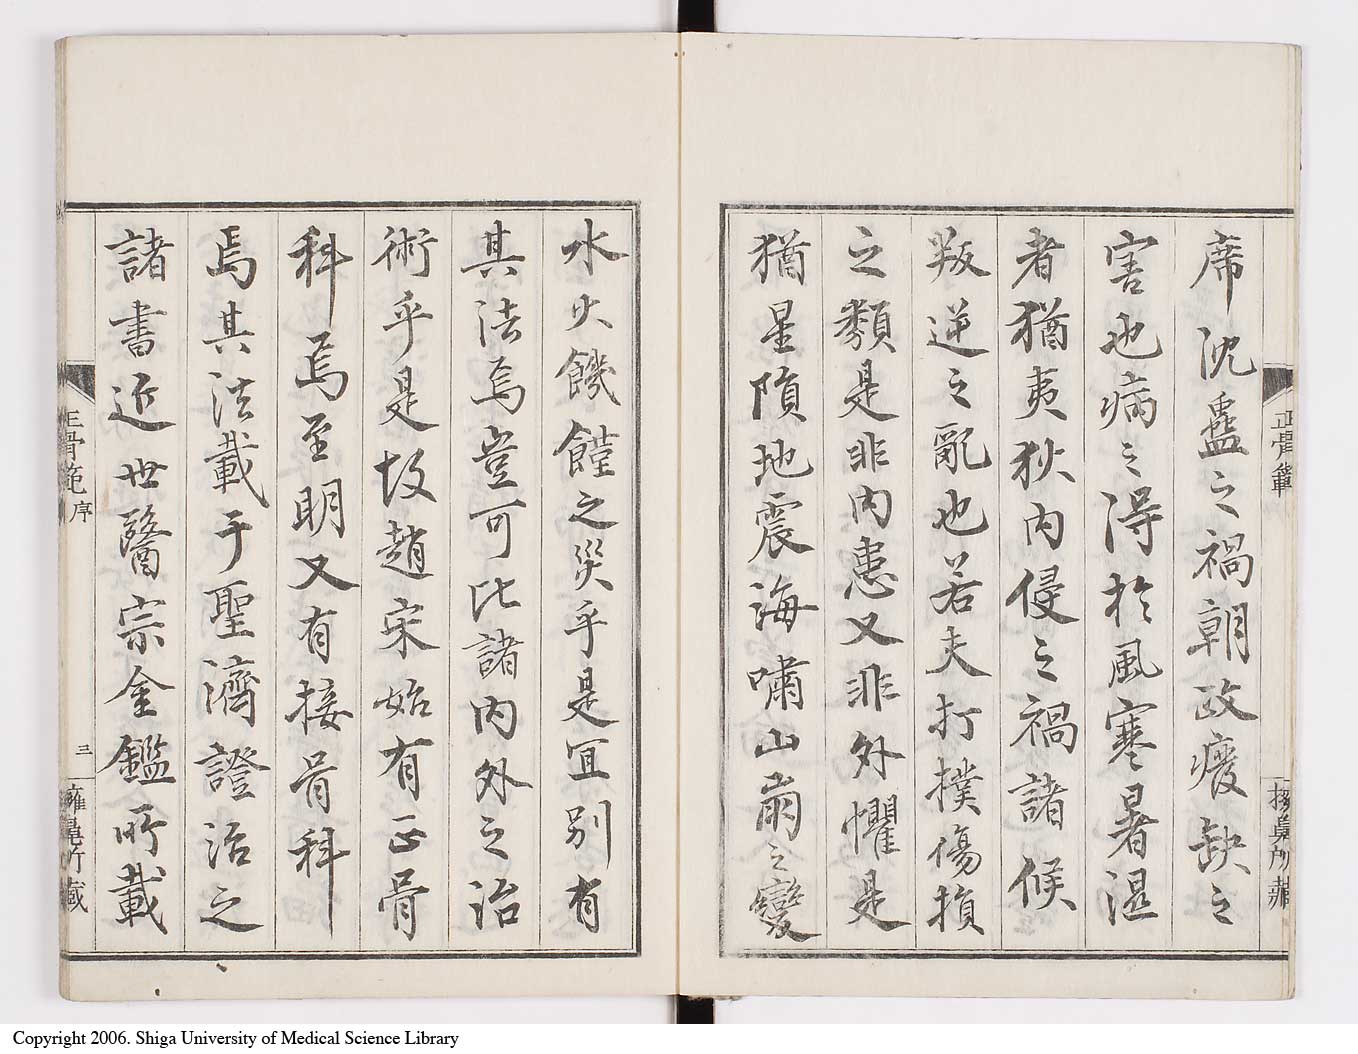 席沈蠱之禍朝政癈缺之
害也病之得於風寒暑湿
者猶夷狄内侵之禍諸候
叛逆之乱也若夫打撲傷損
之類是非内患又非外懼是
猶星隕地震海嘯山崩之變
正骨範
水火饑饉之災乎是宜別有
其法焉豈可比諸内外之治
術乎是故趙宋始有正骨
科焉至明又有接骨科
焉其法載于聖濟證治之
諸書近世醫宗金鑑所載
正骨範序
三
擁鼻所藏
Copyright 2006. Shiga University of Medical Science Library